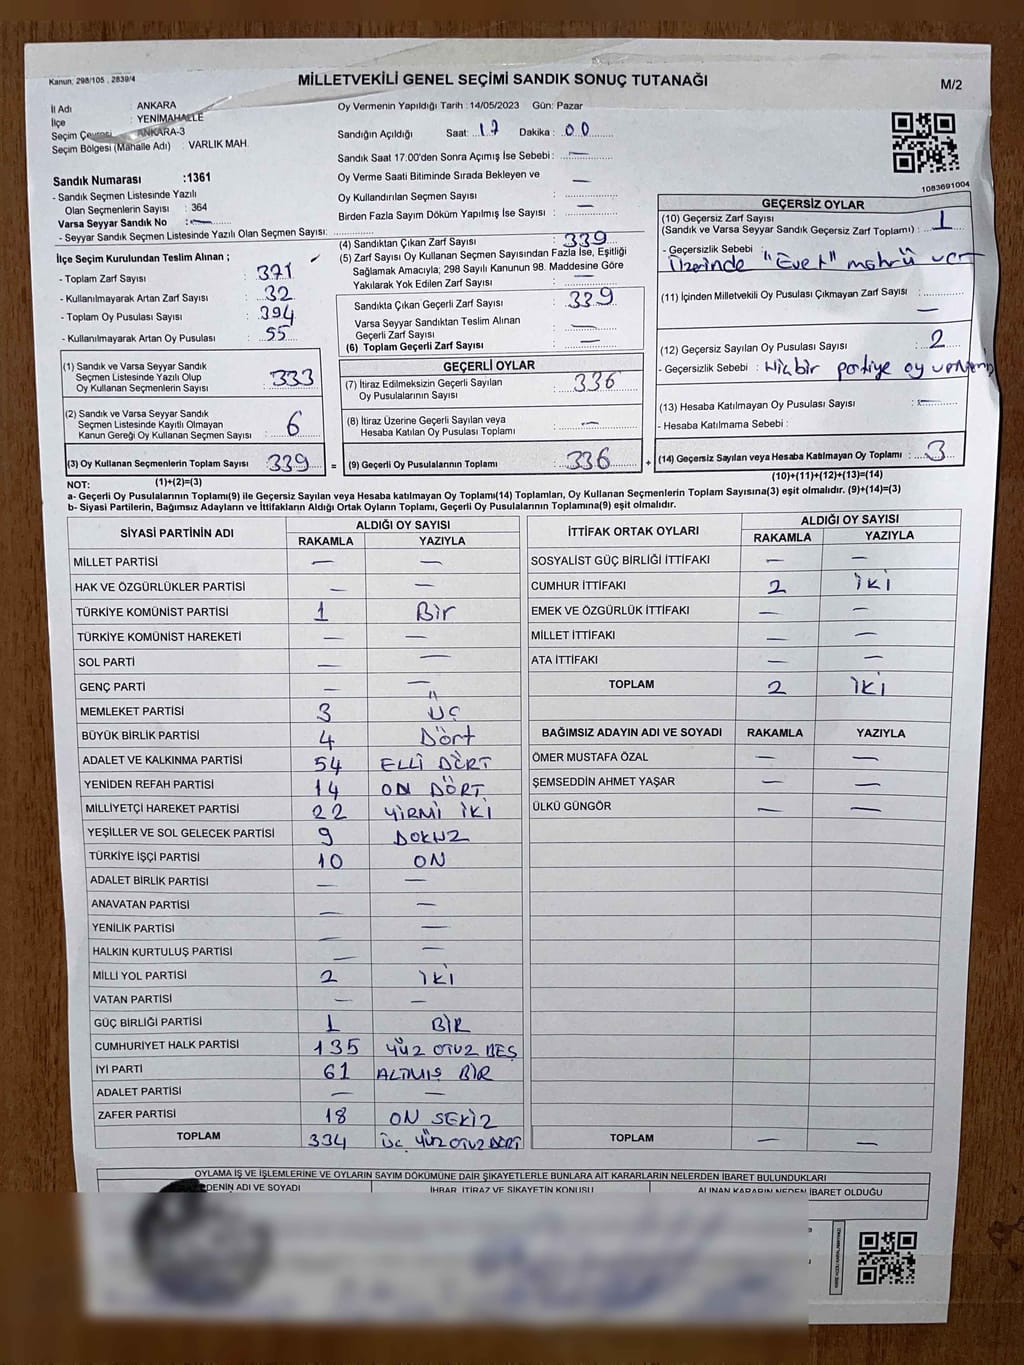 Kanun: 298/105 , 2839/4
MİLLETVEKİLİ GENEL SEÇİMİ SANDIK SONUÇ TUTANAĞI
M/2
İl Adı : ANKARA
İlçe : YENİMAHALLE
Seçim Çevresi ANKARA-3
Seçim Bölgesi (Mahalle Adı) : VARLIK MAH.
Oy Vermenin Yapıldığı Tarih : 14/05/2023 Gün: Pazar
Sandığın Açıldığı Saat: 17 Dakika : 00
Sandık Saat 17.00'den Sonra Açımış İse Sebebi : —
Oy Verme Saati Bitiminde Sırada Bekleyen ve
Oy Kullandırılan Seçmen Sayısı : —
Birden Fazla Sayım Döküm Yapılmış İse Sayısı : —
1083691004
Sandık Numarası :1361
- Sandık Seçmen Listesinde Yazılı
Olan Seçmenlerin Sayısı : 364
Varsa Seyyar Sandık No : —
- Seyyar Sandık Seçmen Listesinde Yazılı Olan Seçmen Sayısı:
İlçe Seçim Kurulundan Teslim Alınan ;
- Toplam Zarf Sayısı : 371
- Kullanılmayarak Artan Zarf Sayısı : 32
- Toplam Oy Pusulası Sayısı : 394
- Kullanılmayarak Artan Oy Pusulası : 55
(1) Sandık ve Varsa Seyyar Sandık
Seçmen Listesinde Yazılı Olup
Oy Kullanan Seçmenlerin Sayısı : 333
(2) Sandık ve Varsa Seyyar Sandık
Seçmen Listesinde Kayıtlı Olmayan
Kanun Gereği Oy Kullanan Seçmen Sayısı : 6
(3) Oy Kullanan Seçmenlerin Toplam Sayısı : 339 =
(4) Sandıktan Çıkan Zarf Sayısı : 339
(5) Zarf Sayısı Oy Kullanan Seçmen Sayısından Fazla İse, Eşitliği
Sağlamak Amacıyla; 298 Sayılı Kanunun 98. Maddesine Göre
Yakılarak Yok Edilen Zarf Sayısı : —
Sandıkta Çıkan Geçerli Zarf Sayısı : 339
Varsa Seyyar Sandıktan Teslim Alınan
Geçerli Zarf Sayısı : —
(6) Toplam Geçerli Zarf Sayısı : —
GEÇERLİ OYLAR
(7) İtiraz Edilmeksizin Geçerli Sayılan
Oy Pusulalarının Sayısı : 336
(8) İtiraz Üzerine Geçerli Sayılan veya
Hesaba Katılan Oy Pusulası Toplamı : —
(9) Geçerli Oy Pusulalarının Toplamı : 336 +
GEÇERSİZ OYLAR
(10) Geçersiz Zarf Sayısı
(Sandık ve Varsa Seyyar Sandık Geçersiz Zarf Toplamı) : 1
- Geçersizlik Sebebi :
üzerinde "Evet" mührü var
(11) İçinden Milletvekili Oy Pusulası Çıkmayan Zarf Sayısı : —
(12) Geçersiz Sayılan Oy Pusulası Sayısı : 2
- Geçersizlik Sebebi : Hiçbir partiye oy
(13) Hesaba Katılmayan Oy Pusulası Sayısı : —
- Hesaba Katılmama Sebebi :
(14) Geçersiz Sayılan veya Hesaba Katılmayan Oy Toplamı : 3
NOT: (1)+(2)=(3) (10)+(11)+(12)+(13)=(14)
a- Geçerli Oy Pusulalarının Toplamı(9) ile Geçersiz Sayılan veya Hesaba katılmayan Oy Toplamı(14) Toplamları, Oy Kullanan Seçmenlerin Toplam Sayısına(3) eşit olmalıdır. (9)+(14)=(3)
b- Siyasi Partilerin, Bağımsız Adayların ve İttifakların Aldığı Ortak Oyların Toplamı, Geçerli Oy Pusulalarının Toplamına(9) eşit olmalıdır.
SİYASİ PARTİNİN ADI ALDIĞI OY SAYISI
RAKAMLA YAZIYLA
MİLLET PARTİSİ — —
HAK VE ÖZGÜRLÜKLER PARTİSİ — —
TÜRKİYE KOMÜNİST PARTİSİ 1 Bir
TÜRKİYE KOMÜNİST HAREKETİ — —
SOL PARTİ — —
GENÇ PARTİ — —
MEMLEKET PARTİSİ 3 Üç
BÜYÜK BİRLİK PARTİSİ 4 Dört
ADALET VE KALKINMA PARTİSİ 54 ELLİ DÖRT
YENİDEN REFAH PARTİSİ 14 ON DÖRT
MİLLİYETÇİ HAREKET PARTİSİ 22 YİRMİ İKİ
YEŞİLLER VE SOL GELECEK PARTİSİ 9 DOKUZ
TÜRKİYE İŞÇİ PARTİSİ 10 ON
ADALET BİRLİK PARTİSİ — —
ANAVATAN PARTİSİ — —
YENİLİK PARTİSİ — —
HALKIN KURTULUŞ PARTİSİ — —
MİLLİ YOL PARTİSİ 2 İKİ
VATAN PARTİSİ — —
GÜÇ BİRLİĞİ PARTİSİ 1 BİR
CUMHURİYET HALK PARTİSİ 135 YÜZ OTUZ BEŞ
İYİ PARTİ 61 ALTMIŞ BİR
ADALET PARTİSİ — —
ZAFER PARTİSİ 18 ON SEKİZ
TOPLAM 334 ÜÇ YÜZ OTUZ DÖRT
İTTİFAK ORTAK OYLARI ALDIĞI OY SAYISI
RAKAMLA YAZIYLA
SOSYALİST GÜÇ BİRLİĞİ İTTİFAKI — —
CUMHUR İTTİFAKI 2 İKİ
EMEK VE ÖZGÜRLÜK İTTİFAKI — —
MİLLET İTTİFAKI — —
ATA İTTİFAKI — —
TOPLAM 2 İKİ
BAĞIMSIZ ADAYIN ADI VE SOYADI RAKAMLA YAZIYLA
ÖMER MUSTAFA ÖZAL — —
ŞEMSEDDİN AHMET YAŞAR — —
ÜLKÜ GÜNGÖR — —
TOPLAM — —
OYLAMA İŞ VE İŞLEMLERİNE VE OYLARIN SAYIM DÖKÜMÜNE DAİR ŞİKAYETLERLE BUNLARA AİT KARARLARIN NELERDEN İBARET BULUNDUKLARI
DENİN ADI VE SOYADI İHBAR, İTİRAZ VE ŞİKAYETİN KONUSU ALINAN KARARIN NEDEN İBARET OLDUĞU